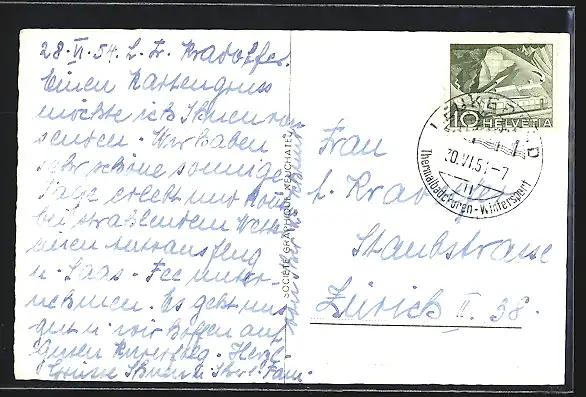 28. VI. 54. L. Fr. Kradolfer.
Einen Kartengruss
möchte ich Ihnen nur
senden. Wir haben
sehr schöne sonnige
Tage erlebt und
bei strahlendem Wetter
einen Autoausflug
n. Saas-Fee unter-
nehmen. Es geht uns
gut u. wir hoffen auf
guten Kurerfolg. Herzl.
Grüsse Ihnen u. Ihrer Fam.
SOCIÉTÉ GRAPHIQUE NEUCHATEL
10 HELVETIA
LEUKERBAD
30.VI.54-7
Thermalbadekuren-Wintersport
Frau
Kradolfer
Staubstrasse
Zürich II. 38.